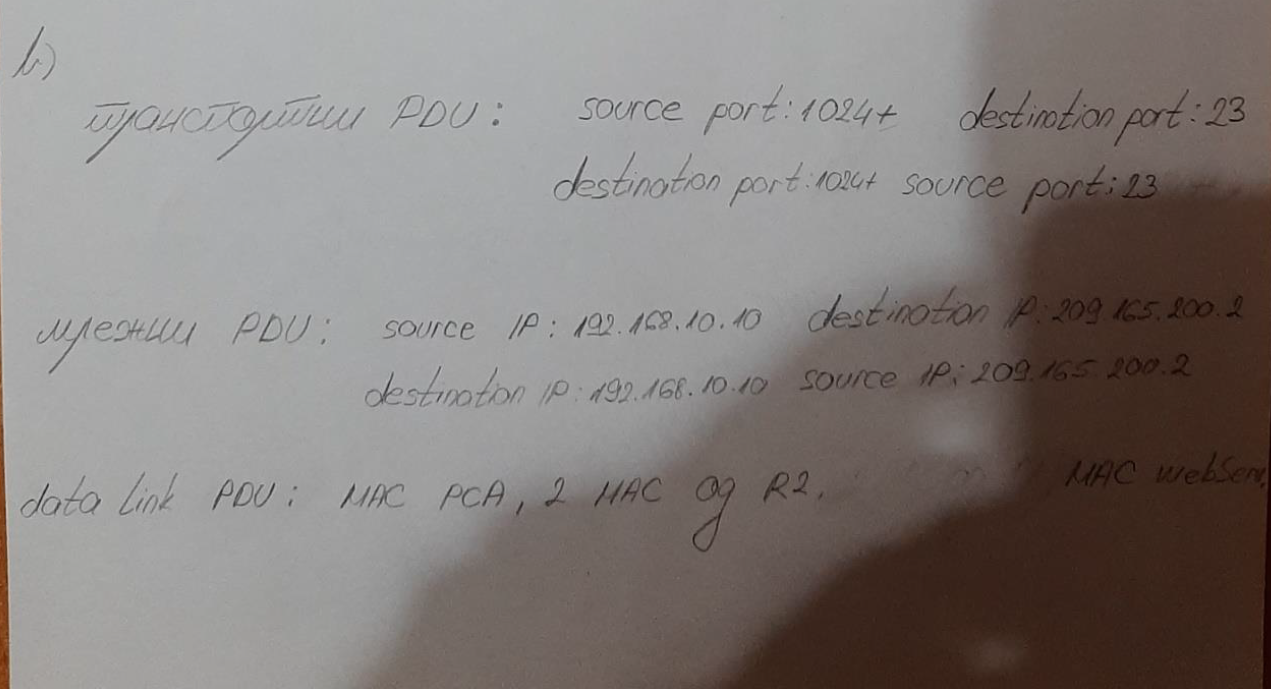 b)
транспортни PDU: source port: 1024+ destination port: 23
destination port: 1024+ source port: 23
мрежни PDU: source IP: 192.168.10.10 destination IP: 209.165.200.2
destination IP: 192.168.10.10 source IP: 209.165.200.2
data link PDU: MAC PCA, 2 MAC од R2. MAC webServ.